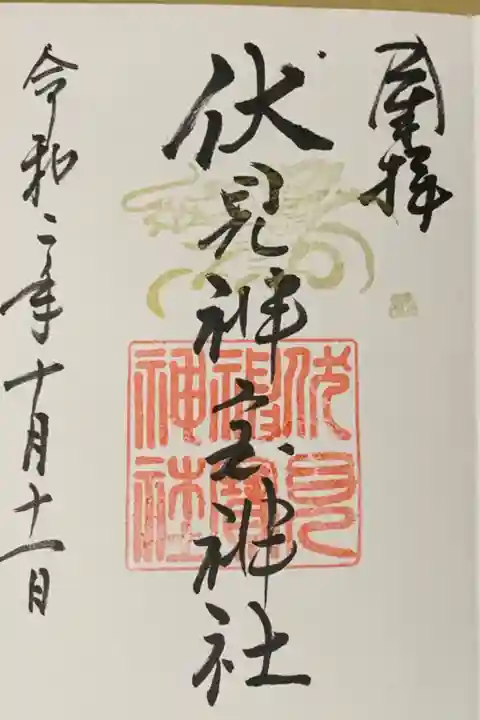 奉拝
伏見神宝神社
伏見
神寶
神社
令和二年十月十一日